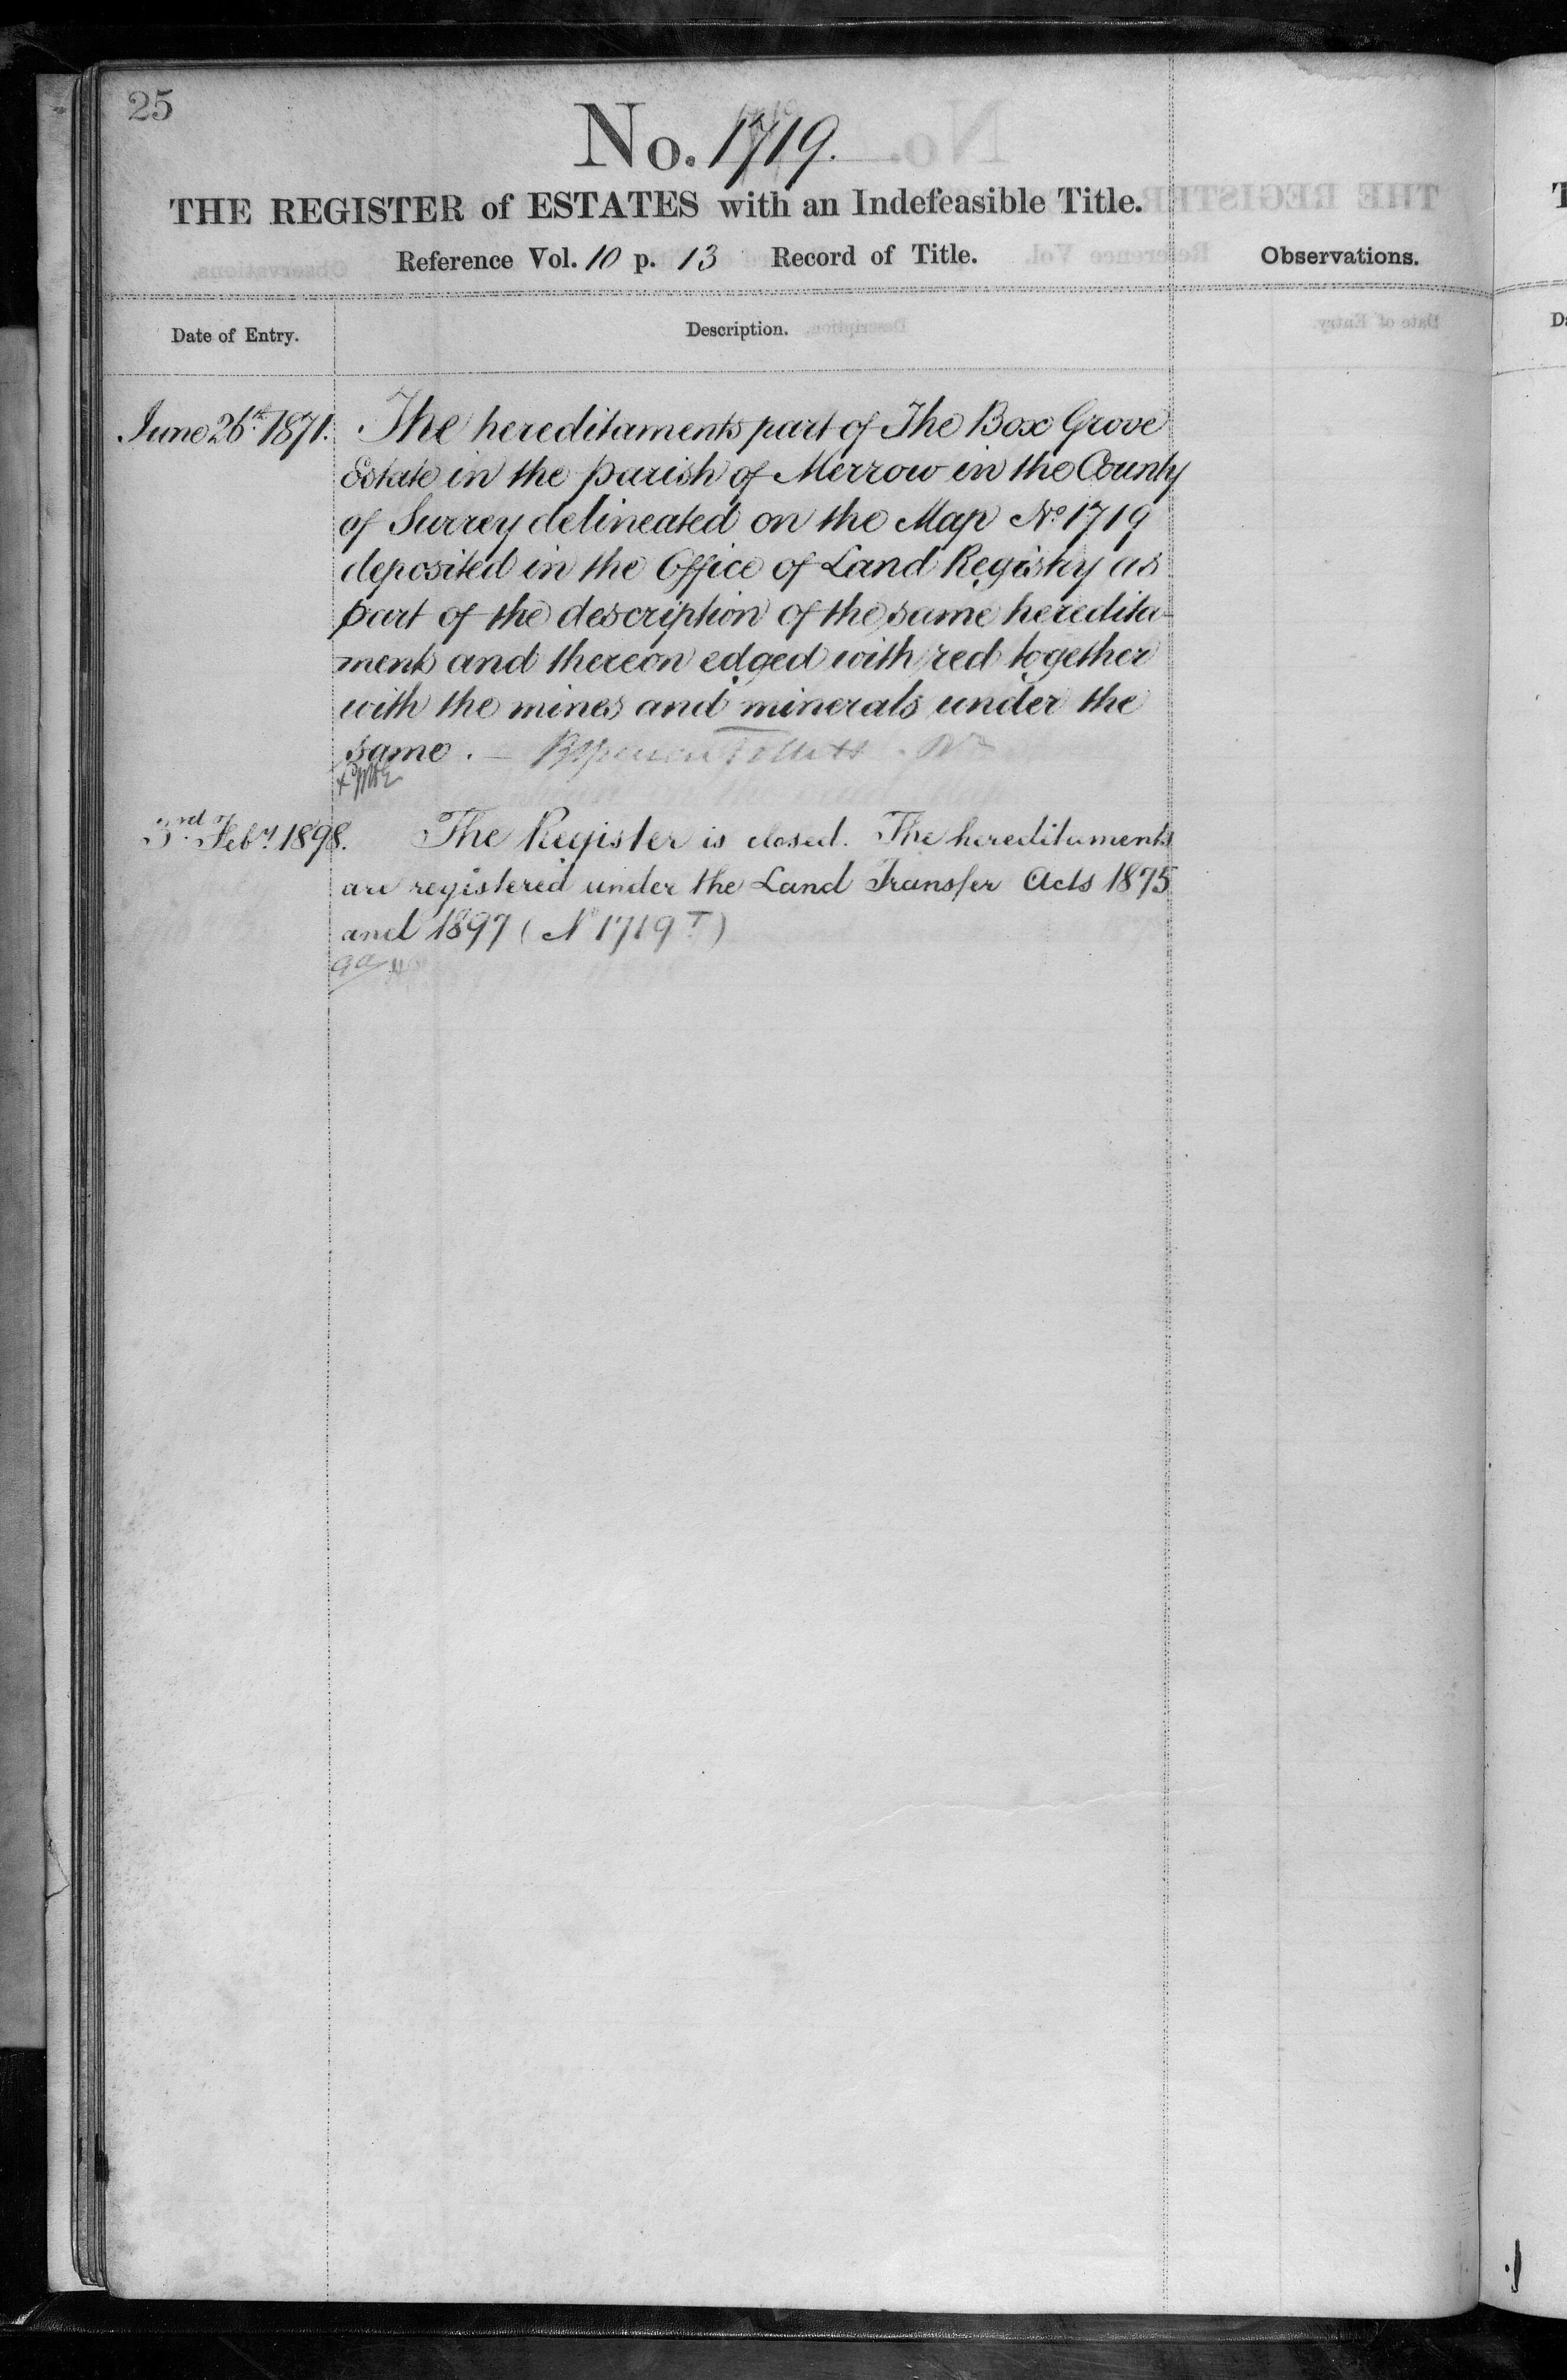 25
No. 1719.
THE REGISTER of ESTATES with an Indefeasible Title.
Reference Vol. 10 p. 13 Record of Title.
Observations.
Date of Entry.
Description.
June 26th 1871. The hereditaments part of The Box Grove
Estate in the parish of Merrow in the County
of Surrey delineated on the Map No 1719
deposited in the Office of Land Registry as
part of the description of the same heredita-
ments and thereon edged with red together
with the mines and minerals under the
same. —
3rd Feby 1898. The Register is closed. The hereditaments
are registered under the Land Transfer Acts 1875
and 1897 (No 1719 T)